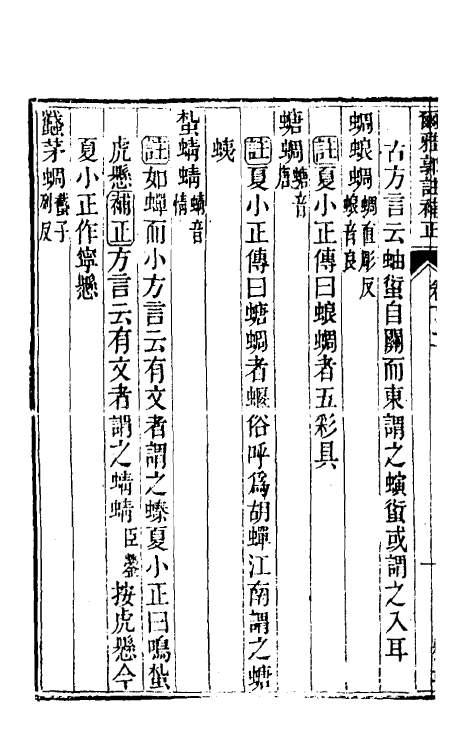 爾雅郭註補正 卷
古方言云蚰蜒自關而東謂之螾蜒或謂之入耳
蜩蜋蜩蜩直彫反蜋音良
註夏小正傳曰蜋蜩者五彩具
螗蜩螗音唐
註夏小正傳曰螗蜩者蝘俗呼爲胡蟬江南謂之螗
蛦
蚻蜻蜻蜻音情
註如蟬而小方言云有文者謂之螓夏小正曰鳴蚻
虎懸補正方言云有文者謂之蜻蜻臣鎣按虎懸今
夏小正作寧懸
蠽茅蜩蠽子列反